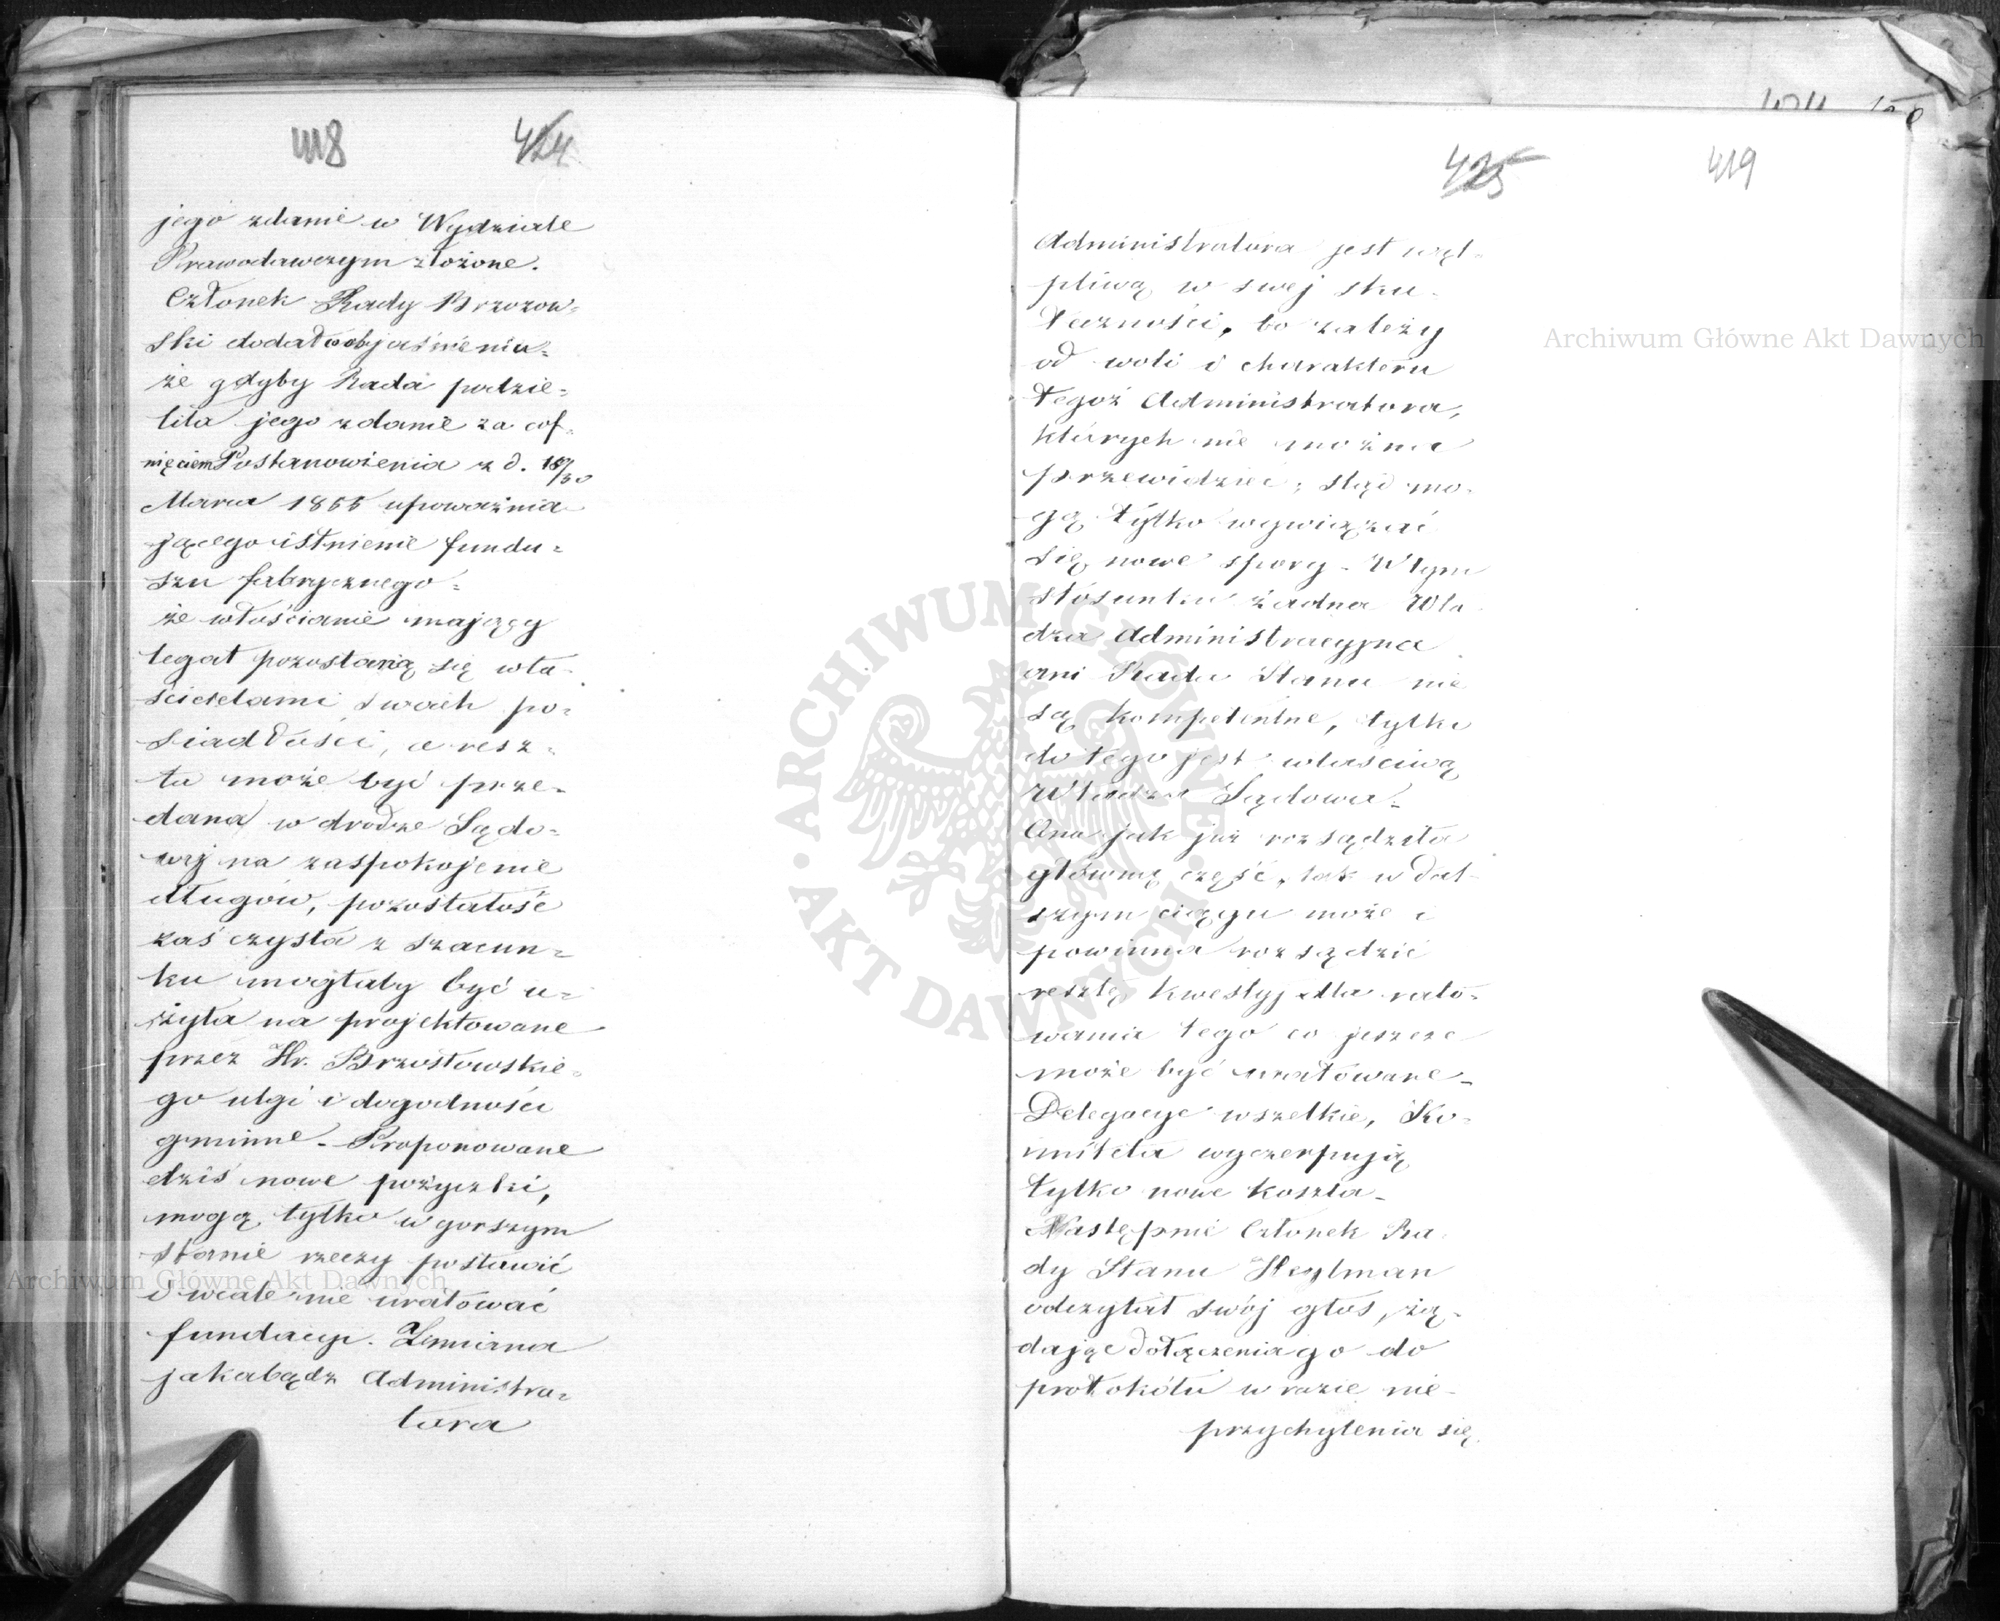 418 424
jego zdanie w Wydziale
Prawodawczym złożone.
Członek Rady Brzozow=
ski dodał objaśnienia=
że gdyby Rada podzie=
liła jego zdanie za cof=
nięciem Postanowienia z d. 18/30
Marca 1866 upoważnia
jącego istnienie fundu=
szu fabrycznego=
że włościanie mający
legat pozostaną się wła=
ścicielami swoich po=
siadłości, a resz=
ta może być prze=
dana w drodze Sądo=
wej na zaspokojenie
długów, pozostałość
zaś czysta z szacun=
ku mogłaby być u=
żyta na projektowane
przez Hr. Brzostowskie=
go ulgi i dogodności
gminne - Proponowane
dziś nowe pożyczki,
mogą tylko w gorszym
stanie rzeczy postawić
i wcale nie uratować
fundacyi. Zmiana
jakabądz Administra=
tora
425 419
Administratora jest wąt=
pliwą w swej sku=
teczności, bo zależy
od woli i charakteru
tegoż Administratora,
których nie można
przewidzieć; stąd mo=
gą tylko wywiązać
się nowe spory - W tym
stosunku żadna Wła=
dza Administracyjna
ani Rada Stanu nie
są kompetentne, tylko
do tego jest właściwą
Władza Sądowa-
Ona jak już rozsądziła
główną część, tak w dal=
szym ciągu może i
powinna rozsądzić
resztę kwestyj dla rato=
wania tego co jeszcze
może być uratowane-
Delegacye wszelkie, Ko=
miteta wyczerpują
tylko nowe koszta-
Następnie Członek Ra=
dy Stanu Heylman
odczytał swój głos, żą=
dając dołączenia go do
protokółu w razie nie=
przychylenia się
Archiwum Główne Akt Dawnych
Archiwum Główne Akt Dawnych
ARCHIWUM GŁÓWNE · AKT DAWNYCH ·